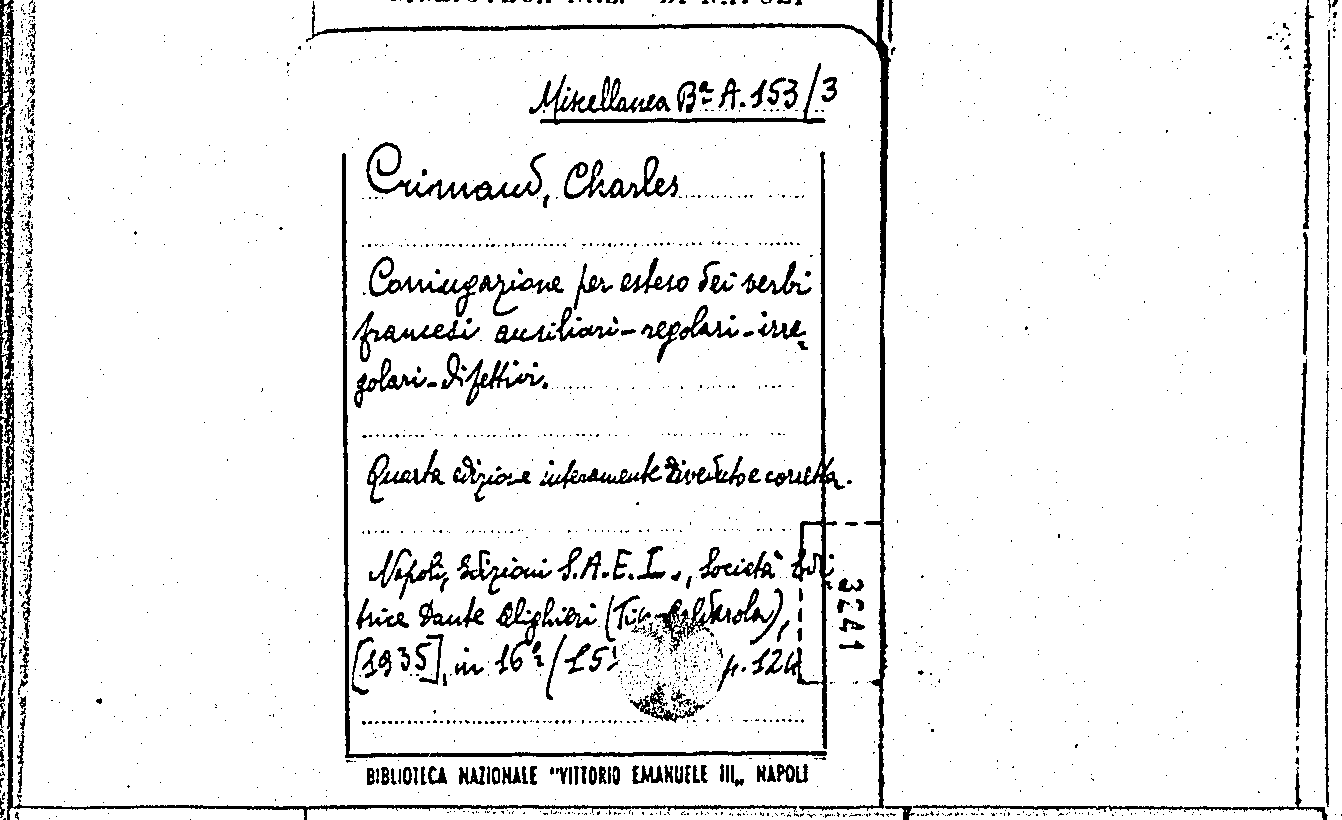 Miscellanea Bª A. 153/3
Crimaud, Charles
Coniugazione per esteso dei verbi
francesi ausiliari-regolari-irre-
golari-difettivi.
Quarta edizione interamente riveduta e corretta.
Napoli, Edizioni S.A.E.I., Società Edi
trice Dante Alighieri
[1935], in 16º p. 124
3241
BIBLIOTECA NAZIONALE "VITTORIO EMANUELE III„ NAPOLI